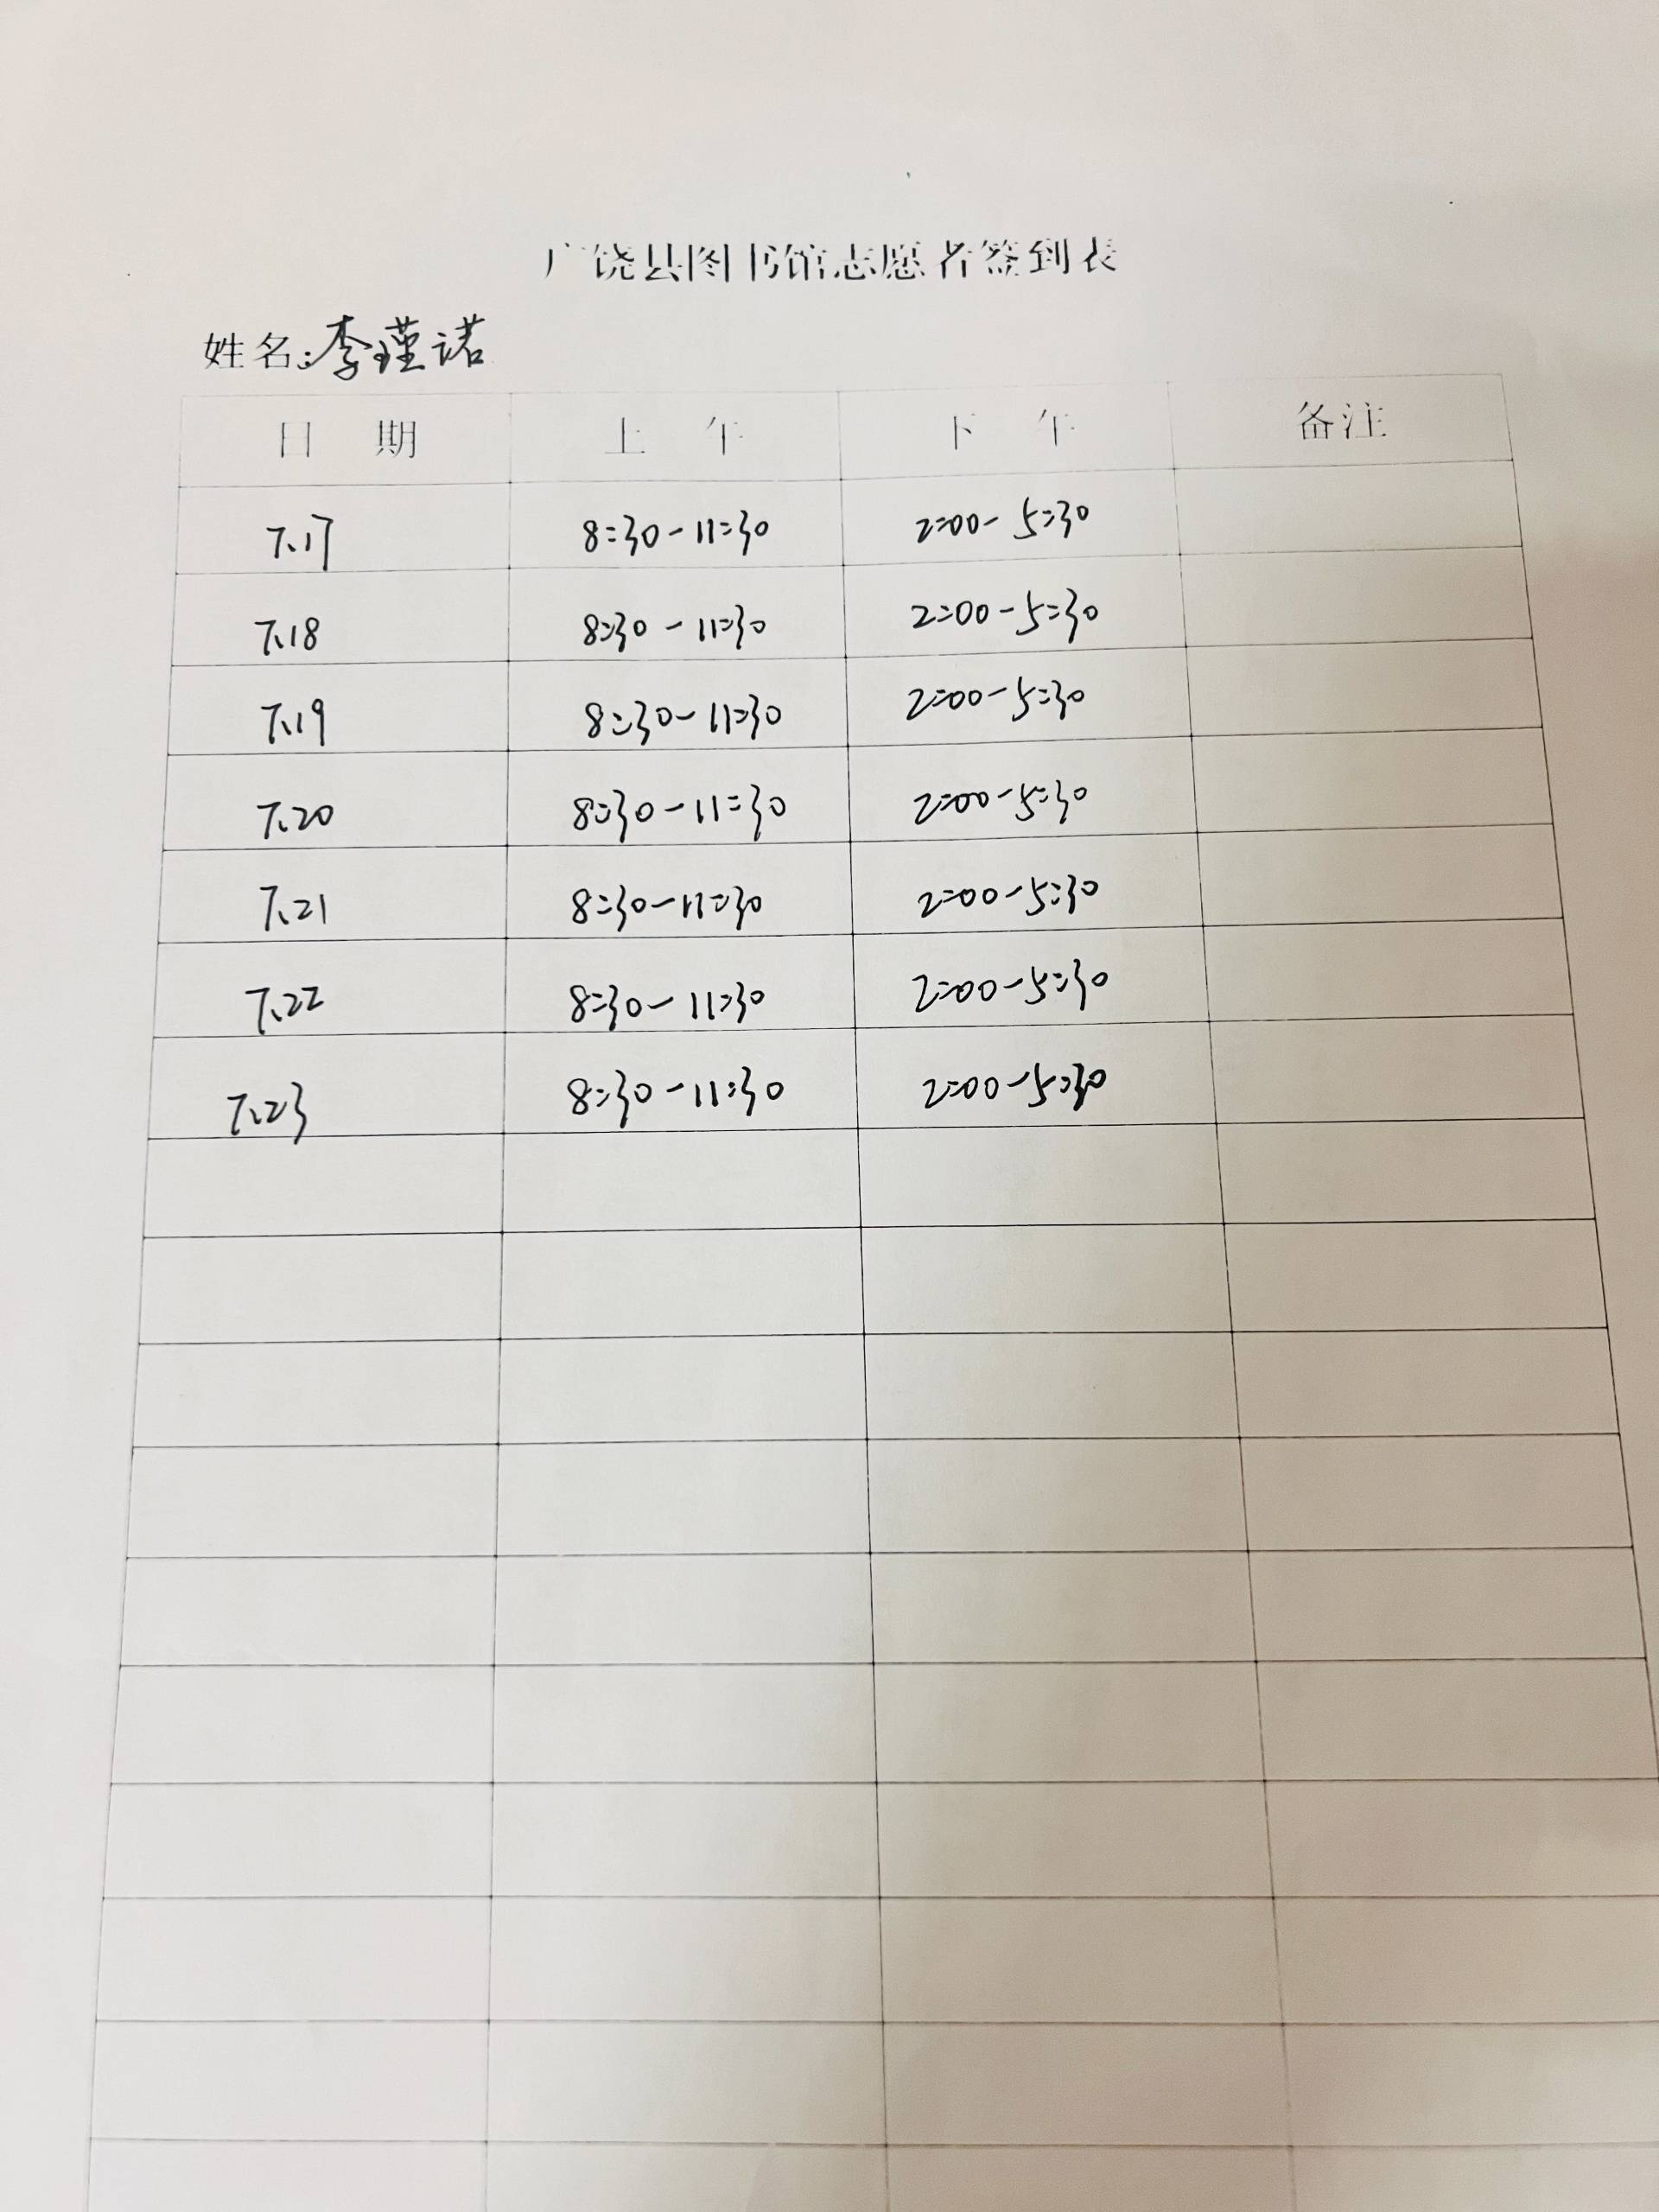 广饶县图书馆志愿者签到表
姓名:李瑾诺
日期 上午 下午 备注
7.17 8:30-11:30 2:00-5:30
7.18 8:30-11:30 2:00-5:30
7.19 8:30-11:30 2:00-5:30
7.20 8:30-11:30 2:00-5:30
7.21 8:30-11:30 2:00-5:30
7.22 8:30-11:30 2:00-5:30
7.23 8:30-11:30 2:00-5:30